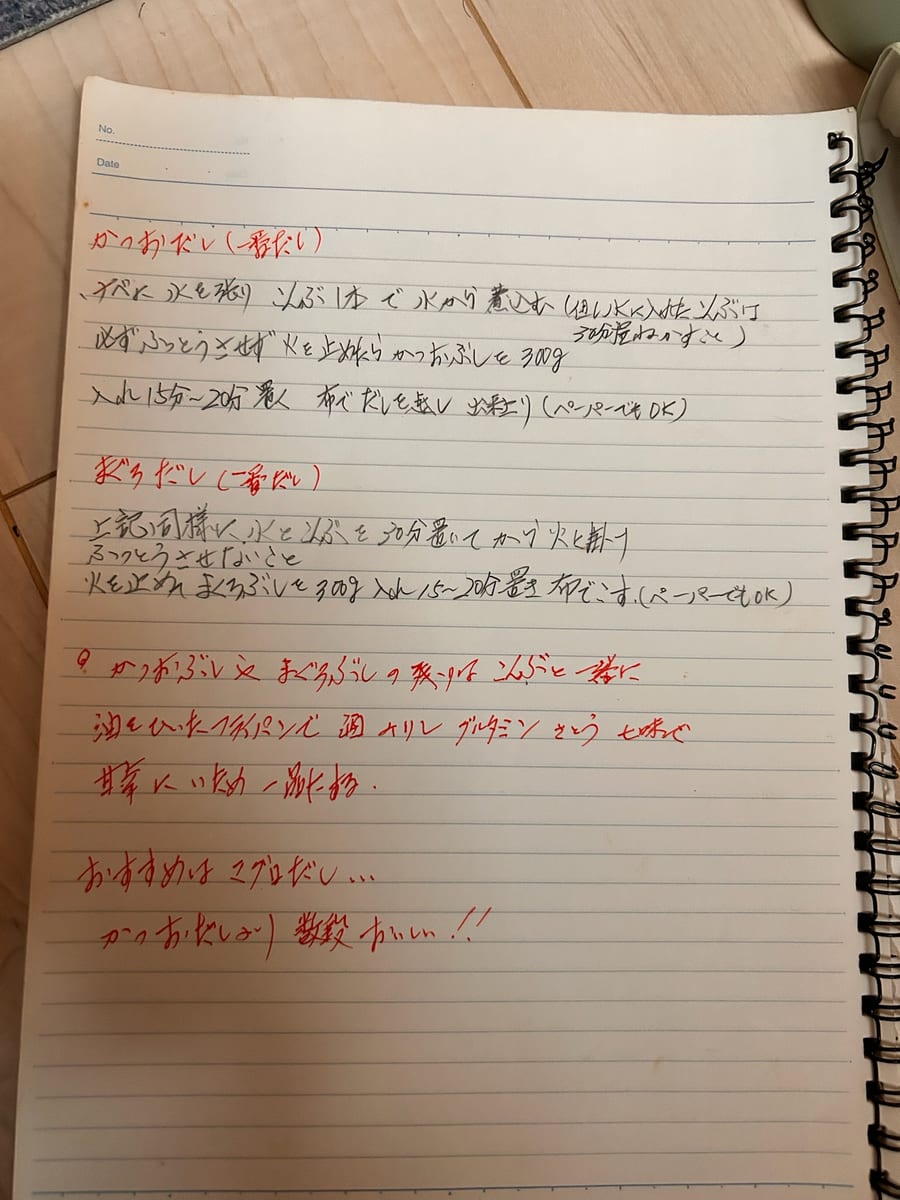 No.
Date
かつおだし(一番だし)
ナベに水を張り こんぶ1本で水から煮込む(但し水に入れたこんぶは
30分程ねかすこと)
必ずふっとうさせず火を止めたらかつおぶしを300g
入れ15分〜20分置く 布でだしを越し 出来上り(ペーパーでもOK)
まぐろだし(一番だし)
上記同様に水とこんぶを30分置いてから火に掛け
ふっとうさせないこと
火を止めれまぐろぶしを300g入れ15〜20分置き布でこす.(ペーパーでもOK)
かつおぶしや まぐろぶしの残りは こんぶと一緒に
油をひいたフライパンで 酒 みりん グルタミン さとう 七味で
甘辛にいため一品にする.
おすすめは マグロだし...
かつおだしより 数段おいしい!!